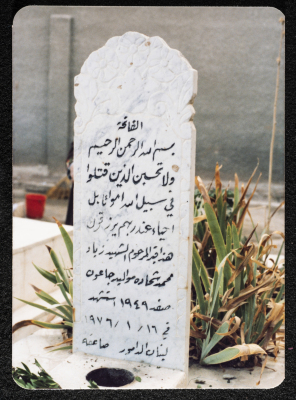 الفاتحة
بسم الله الرحمن الرحيم
ولا تحسبن الذين قتلوا
في سبيل الله امواتا بل
احياء عند ربهم يرزقون
هذا قبر المرحوم الشهيد زياد
محمد شحاده مواليد جاعون
صفد ١٩٤٩ استشهد
في ١٦ / ١ / ١٩٧٦
لبنان الدامور